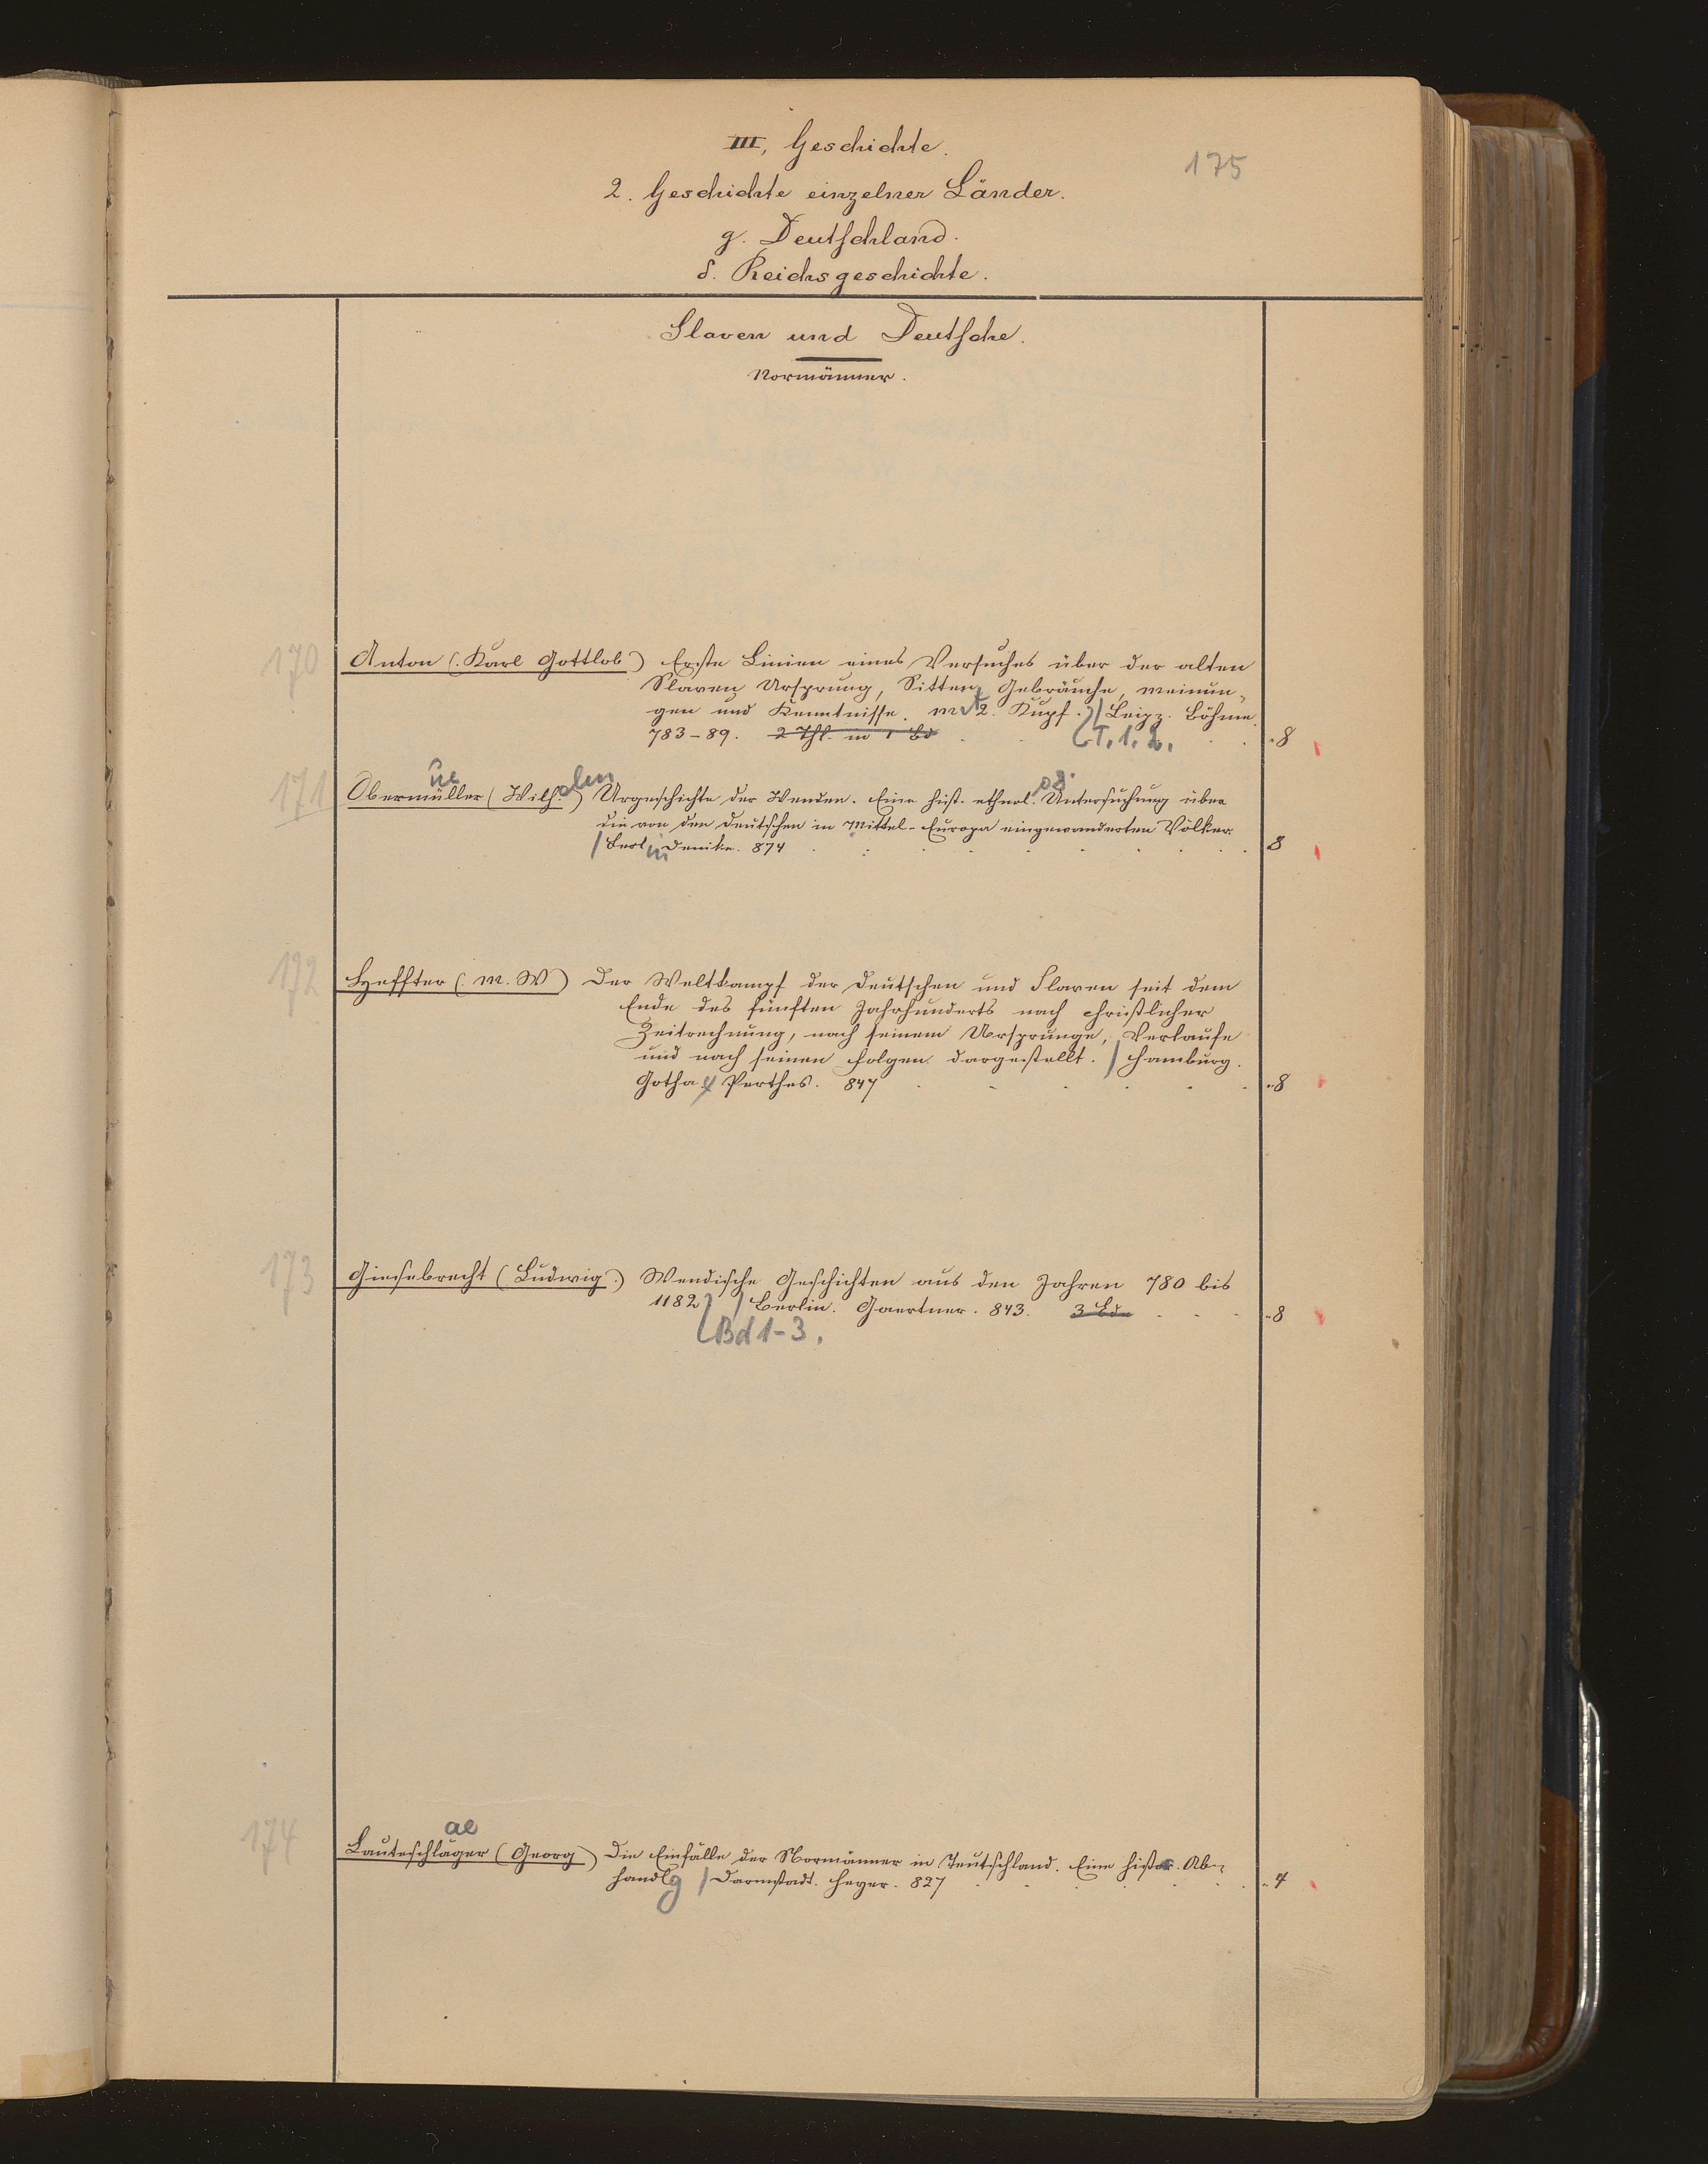 III, Geschichte.
175
2. Geschichte einzelner Länder.
g. Deutschland.
δ. Reichsgeschichte.
Slaven und Deutsche.
Normänner.
170 Anton (Karl Gottlob) Erste Linien eines Versuches über der alten
Slaven Ursprung, Sitten, Gebräuche, Meinun-
gen und Kenntnisse. Mit 2. Kupf. Leipz. Böhme.
783-89. 2 Thl. in 1 Bd T. 1. 2. 8
171 Obermüller (Wilh.elm) Urgeschichte der Wenden. Eine hist. ethnol.og. Untersuchung über
ue
die von den Deutschen in Mittel-Europa eingewanderten Völker.
/ Berlin Denike. 874 8
172 Heffter (M. W) Der Weltkampf der Deutschen und Slaven seit dem
Ende des fünften Jahrhunderts nach christlicher
Zeitrechnung, nach seinem Ursprunge, Verlaufe
und nach seinen Folgen dargestellt. / Hamburg.
Gotha. Perthes. 847 8
173 Giesebrecht (Ludwig.) Wendische Geschichten aus den Jahren 780 bis
1182 / Berlin. Gaertner. 843. 3 Bde 8
Bd 1-3.
ae
174 Lauteschläger (Georg) Die Einfälle der Normänner in Teutschland. Eine histor. Ab-
handlg / Darmstadt. Heyer. 827 4